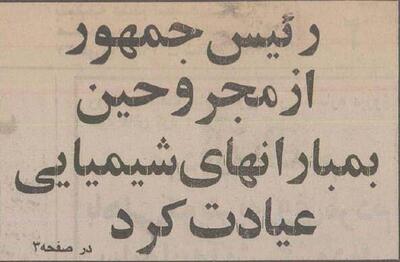 رئیس جمهور
از مجروحین
بمبارانهای شیمیایی
عیادت کرد
در صفحه۳